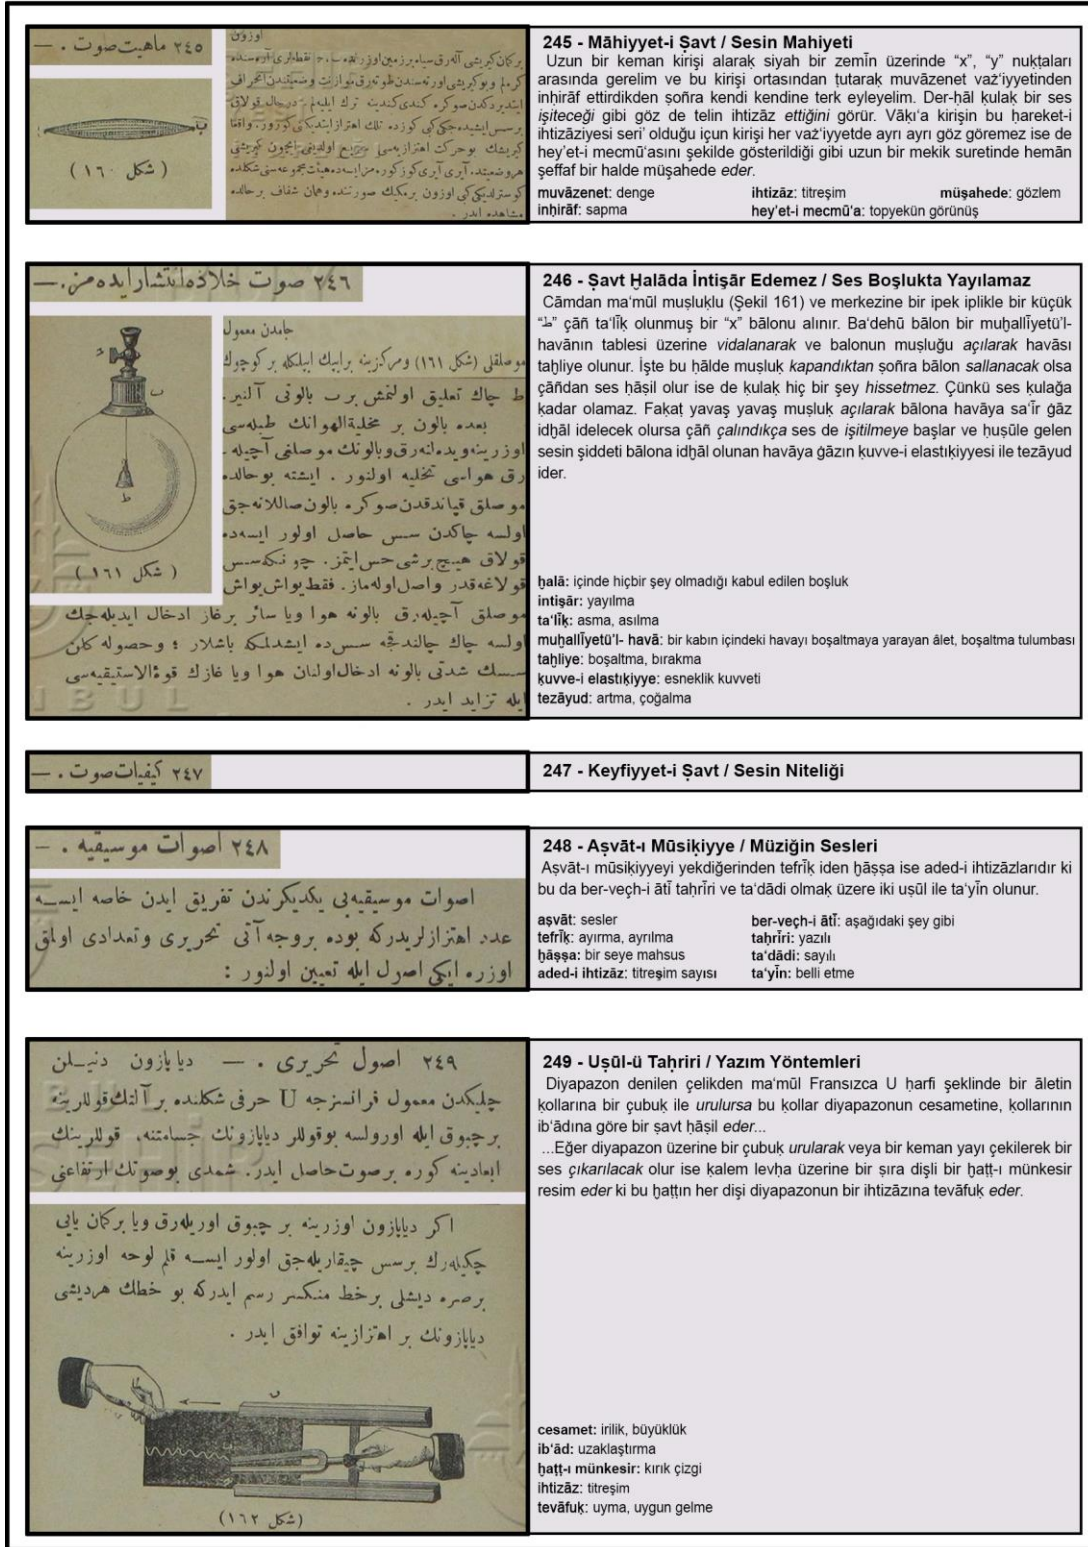 ٢٤٥ ماهيت صوت . —
اوزون
( شكل ١٦٠ )
كوسترلديكى كبى اوزون بر مكيك صورتنده وهمان شفاف بر حالده
مشاهده ايدر .
245 - Māhiyyet-i Ṣavt / Sesin Mahiyeti
Uzun bir keman kirişi alaraḳ siyah bir zemīn üzerinde “x”, “y” nuḳṭaları
arasında gerelim ve bu kirişi ortasından tutaraḳ muvāzenet važ‘iyyetinden
inḥirāf ettirdikden ṣoñra kendi kendine terk eyleyelim. Der-ḥāl ḳulaḳ bir ses
işiteceği gibi göz de telin ihtizāz ettiğini görür. Vāḳı‘a kirişin bu ḥareket-i
ihtizāziyesi seri’ olduğu içun kirişi her važ‘iyyetde ayrı ayrı göz göremez ise de
hey’et-i mecmū‘asını şekilde gösterildiği gibi uzun bir mekik suretinde hemān
şeffaf bir halde müşahede eder.
muvāzenet: denge ihtizāz: titreşim müşahede: gözlem
inḥirāf: sapma hey’et-i mecmū‘a: topyekün görünüş
٢٤٦ صوت خلاده انتشار ايده مز . —
جامدن معمول
موصلقلى (شكل ١٦١) ومركزينه بر ايپك ايپلكله بر كوچوك
ط چاك تعليق اولنمش بر ب بالونى آلنير .
بعده بالون بر مخلية الهوانك طبله سى
اوزرينه ويده لنه رق وبالونك موصلغى آچيله
رق هواسى تخليه اولنور . ايشته بو حالده
موصلق قپاندقدن صوكره بالون صاللانه جق
اولسه چاكدن سس حاصل اولور ايسه ده
قولاق هيچ بر شى حس ايتمز . چونكه سس
قولاغه قدر واصل اوله ماز . فقط يواش يواش
موصلق آچيله رق بالونه هوا ويا سائر بر غاز ادخال ايديله جك
اولسه چاك چالندقجه سس ده ايشدلمكه باشلار ؛ وحصوله كلن
سسك شدتى بالونه ادخال اولنان هوا ويا غازك قوۀ الاستيقيه سى
ايله تزايد ايدر .
( شكل ١٦١ )
246 - Ṣavt Ḫalāda İntişār Edemez / Ses Boşlukta Yayılamaz
Cāmdan ma‘mūl muṣluḳlu (Şekil 161) ve merkezine bir ipek iplikle bir küçük
“ط” çāñ ta‘līḳ olunmuş bir “x” bālonu alınır. Ba‘dehū bālon bir muḫallīyetü’l-
havānın tablesi üzerine vidalanarak ve balonun muşluğu açılarak havāsı
taḫliye olunur. İşte bu ḥālde muşluḳ kapandıktan ṣoñra bālon sallanacak olsa
çāñdan ses ḥāṣil olur ise de ḳulaḳ hiç bir şey hissetmez. Çünkü ses ḳulağa
ḳadar olamaz. Faḳaṭ yavaş yavaş muşluḳ açılarak bālona havāya sa‘īr ġāz
idḫāl idelecek olursa çāñ çalındıkça ses de işitilmeye başlar ve ḥuṣūle gelen
sesin şiddeti bālona idḫāl olunan havāya ġāzın ḳuvve-i elastıḳiyyesi ile tezāyud
ider.
ḫalā: içinde hiçbir şey olmadığı kabul edilen boşluk
intişār: yayılma
ta‘līḳ: asma, asılma
muḫallīyetü’l- havā: bir kabın içindeki havayı boşaltmaya yarayan âlet, boşaltma tulumbası
taḫliye: boşaltma, bırakma
ḳuvve-i elastıḳiyye: esneklik kuvveti
tezāyud: artma, çoğalma
٢٤٧ كيفيات صوت . —
247 - Keyfiyyet-i Ṣavt / Sesin Niteliği
٢٤٨ اصوات موسيقيه . —
اصوات موسيقيه يى يكديكرندن تفريق ايدن خاصه ايسه
عدد اهتزازلريدركه بوده بروجه آتى تحريرى وتعدادى اولمق
اوزره ايكى اصول ايله تعيين اولنور :
248 - Aṣvāt-ı Mūsiḳiyye / Müziğin Sesleri
Aṣvāt-ı mūsiḳiyyeyi yekdiğerinden tefrīḳ iden ḫāṣṣa ise aded-i ihtizāzlarıdır ki
bu da ber-veçh-i ātī taḥrīri ve ta‘dādi olmaḳ üzere iki uṣūl ile ta‘yīn olunur.
aṣvāt: sesler ber-veçh-i ātī: aşağıdaki şey gibi
tefrīḳ: ayırma, ayrılma taḥrīri: yazılı
ḫāṣṣa: bir seye mahsus ta‘dādi: sayılı
aded-i ihtizāz: titreşim sayısı ta‘yīn: belli etme
٢٤٩ اصول تحريرى . — دياپازون دنيلن
چليكدن معمول فرانسزجه U حرفى شكلنده بر آلتك قوللرينه
بر چبوق ايله اورولسه بو قوللر دياپازونك جسامتنه، قوللرينك
ابعادينه كوره بر صوت حاصل ايدر. شمدى بو صوتك ارتفاعنى
اكر دياپازون اوزرينه بر چبوق اوريله رق ويا بر كمان يايى
چكيله رك بر سس چيقاريله جق اولور ايسه قلم لوحه اوزرينه
بر صره ديشلى بر خط منكسر رسم ايدركه بو خطك هر ديشى
دياپازونك بر اهتزازينه توافق ايدر .
(شكل ١٦٢)
249 - Uṣūl-ü Taḥriri / Yazım Yöntemleri
Diyapazon denilen çelikden ma‘mūl Fransızca U ḥarfi şeklinde bir āletin
ḳollarına bir çubuḳ ile urulursa bu kollar diyapazonun cesametine, ḳollarının
ib‘ādına göre bir ṣavt ḥāṣil eder...
...Eğer diyapazon üzerine bir çubuḳ urularak veya bir keman yayı çekilerek bir
ses çıkarılacak olur ise ḳalem levḥa üzerine bir ṣıra dişli bir ḫaṭṭ-ı münkesir
resim eder ki bu ḫaṭṭın her dişi diyapazonun bir ihtizāzına tevāfuḳ eder.
cesamet: irilik, büyüklük
ib‘ād: uzaklaştırma
ḫaṭṭ-ı münkesir: kırık çizgi
ihtizāz: titreşim
tevāfuḳ: uyma, uygun gelme